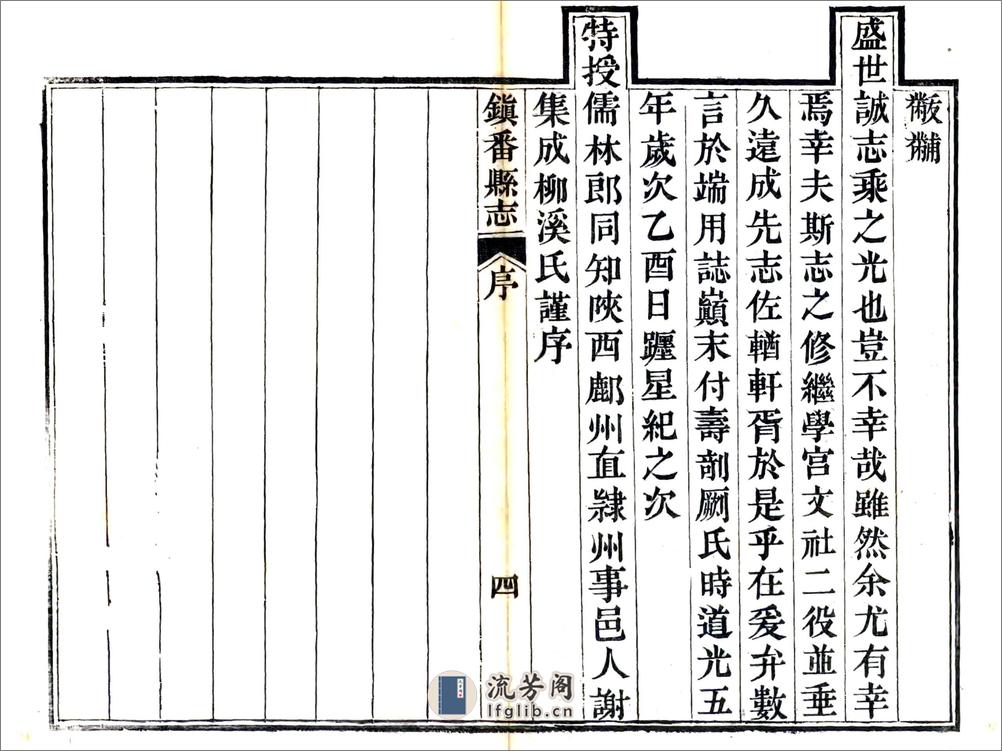 黻黼
盛世誠志乘之光也豈不幸哉雖然余尤有幸
焉幸夫斯志之修繼學宮文社二役並垂
久遠成先志佐輶軒胥於是乎在爰弁數
言於端用誌巔末付壽剞劂氏時道光五
年歲次乙酉日躔星紀之次
特授儒林郎同知陝西鄜州直隷州事邑人謝
集成柳溪氏謹序
鎮番縣志 序 四
流芳阁
lfglib.cn